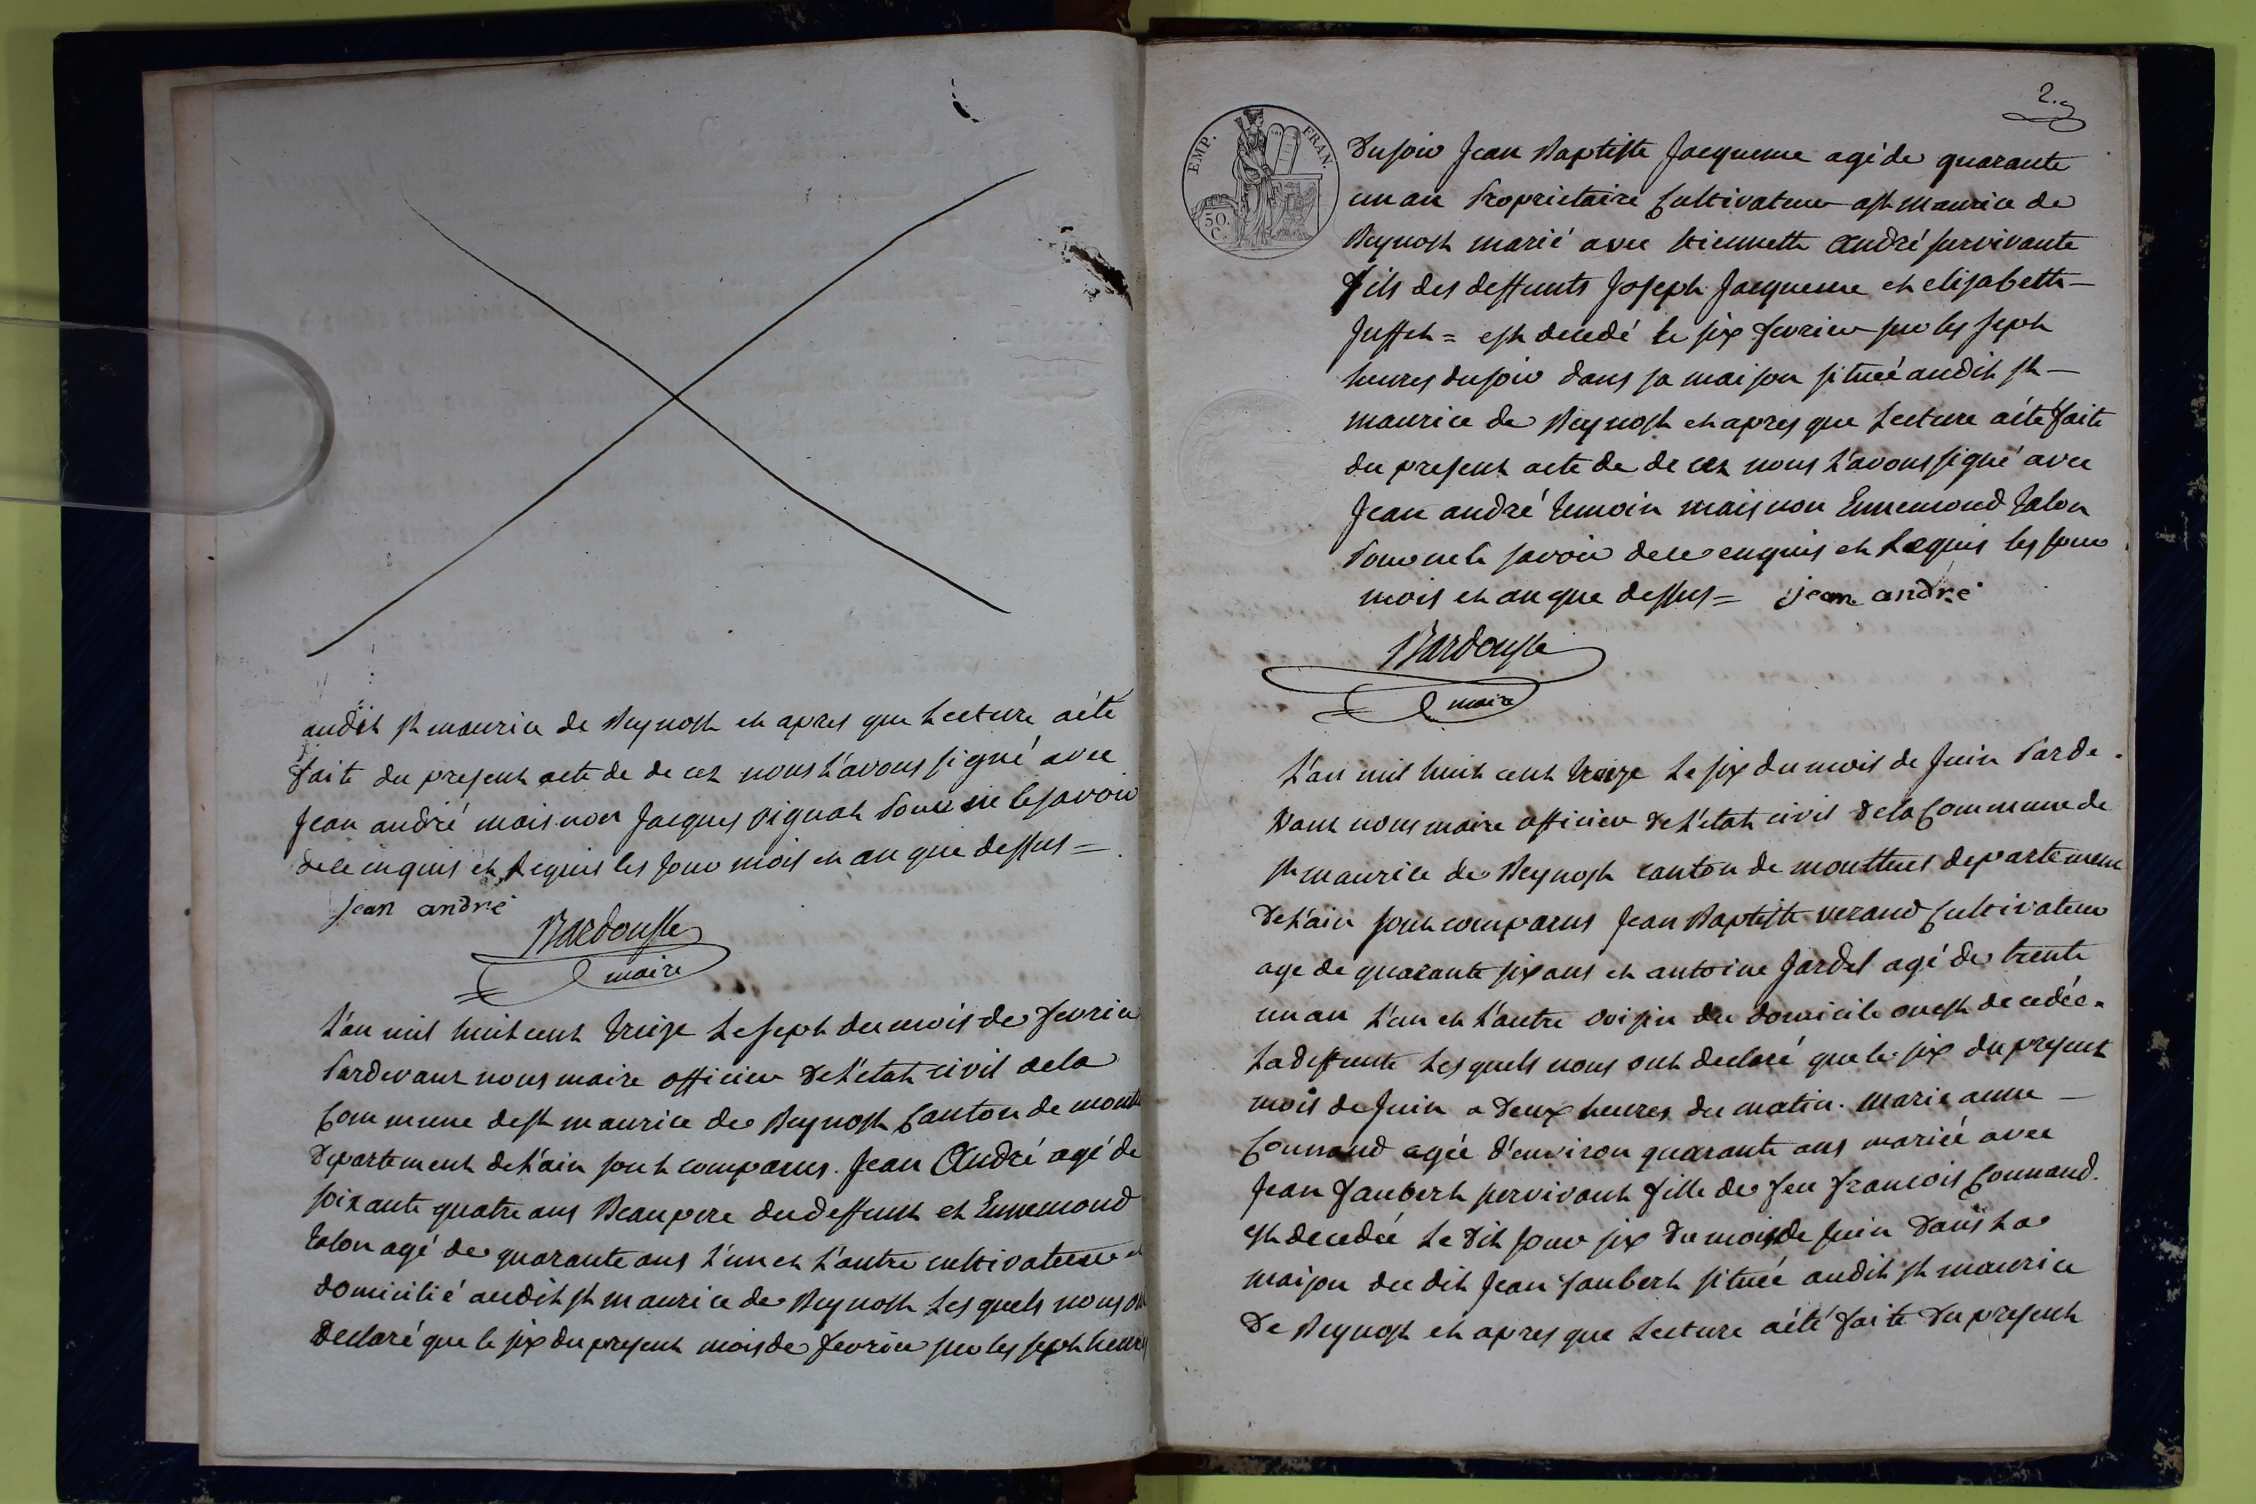 audit st maurice de Beynost et apres que Lecture aété
faite du present acte de decez nous L'avons signé avec
Jean andré mais non Jacques vignat Pour ne le savoir
dece enquis et Requis les Jour mois et an que dessus =
jean andré
Bardousse
maire
L'an mil huit cent treize Le sept du mois de fevrier
Pardevant nous maire officier de L'etat civil de la
Commune de st maurice de Beynost Canton de
Departement de L'ain sont comparus. Jean André agé de
soixante quatre ans Beaupere du deffunt et Ennemond
talon agé de quarante ans L'un et L'autre cultivateur et
domicilié audit st maurice de Beynost Lesquels nous ont
Declaré que le six du present mois de fevrier sur les sept heures
2.
EMP. FRAN.
50. C.
du soir Jean Baptiste Jacqueme agé de quarante
un an Proprietaire Cultivateur a st maurice de
Beynost marié avec Etiennette André survivante
fils des deffunts Joseph Jacqueme et elisabeth -
Juffet = est decedé le six fevrier sur les sept
heures du soir dans sa maison située audit st -
maurice de Beynost et apres que Lecture aété faite
du present acte de de cez nous L'avons signé avec
Jean andré temoin mais non Ennemond talon
Pour ne le savoir dece enquis et Requis les jour
mois et an que dessus = jean andré
Bardousse
maire
L'an mil huit cent treize Le six du mois de Juin Parde
vant nous maire officier de L'etat civil de la Commune de
st maurice de Beynost canton de montluel departement
de L'ain sont comparus Jean Baptiste verand Cultivateur
age de quarante six ans et antoine Jardel agé de trente
un an L'un et L'autre voisin du domicile ou est decedée
La deffunte Lesquels nous ont declaré que le six du present
mois de Juin a deux heures du matin. marie anne -
Connand agée d'environ quarante ans mariée avec
Jean Jaubert survivant fille de feu francois Connand.
est decedée Le dit jour six du mois de Juin dans La
maison du dit Jean Jaubert située audit st maurice
De Beynost et apres que Lecture aété faite du present